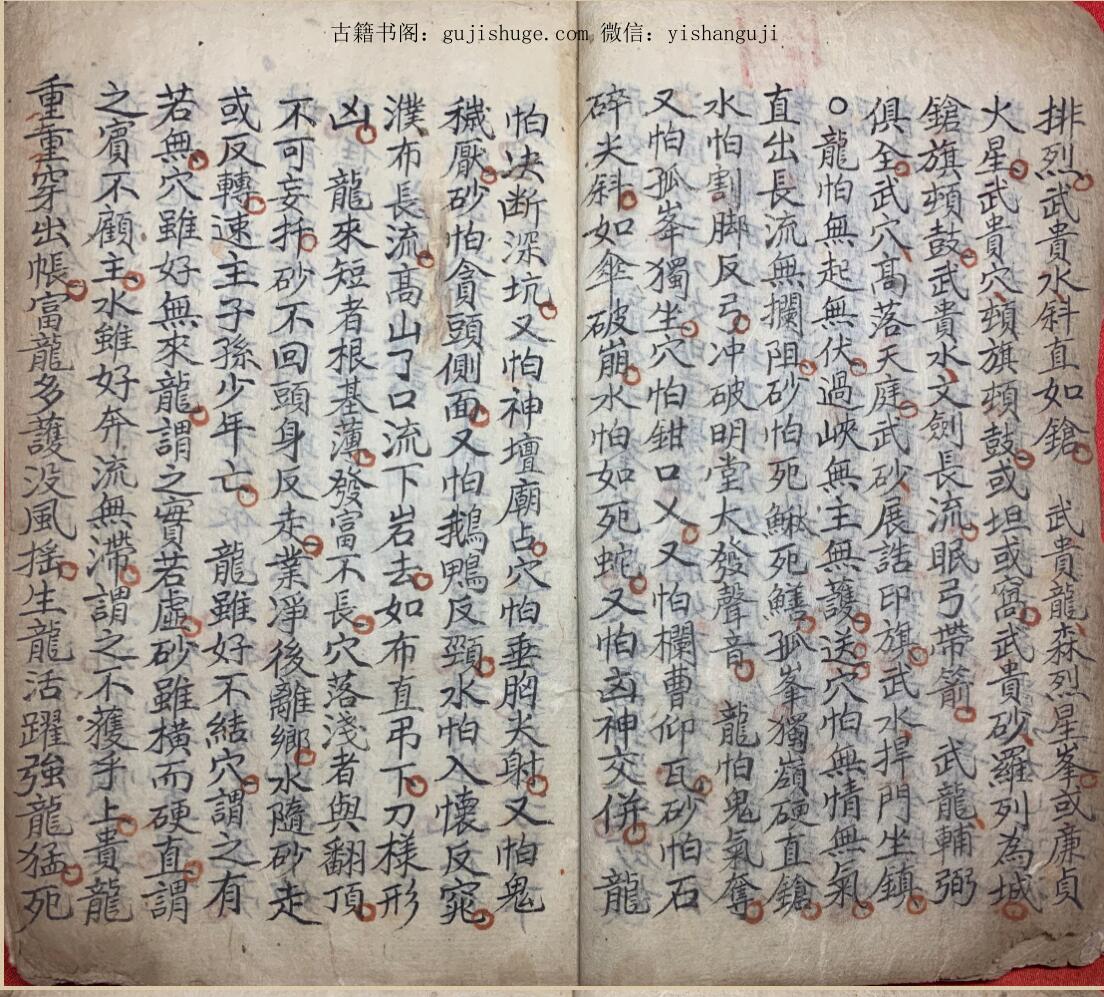 古籍书阁：gujishuge.com 微信：yishanguji
排烈武貴水斜直如鎗 武貴龍森烈星峯或廉貞
火星武貴穴頓旗頓鼓或坦或窩武貴砂羅列為城
鎗旗頓鼓武貴水文劍長流眠弓帶箭 武龍輔弼
俱全武穴高落天庭武砂展誥印旗武水捍門坐鎮
○龍怕無起無伏過峽無主無護送穴怕無情無氣
直出長流無攔阻砂怕死鰍死鱔孤峯獨嶺硬直鎗
水怕割脚反弓冲破明堂大發聲音 龍怕鬼氣奪
又怕孤峯獨坐穴怕鉗口乂又怕欄曹仰瓦砂怕石
碎夫斜如傘破崩水怕如死蛇又怕凶神交併 龍
怕决断深坑又怕神壇廟占穴怕垂胸尖射又怕鬼
穢厭砂怕貪頭側面又怕鵝鴨反頸水怕入懷反窕
濮布長流高山了口流下岩去如布直吊下刀樣形
凶 龍來短者根基薄發富不長穴落淺者與翻頂
不可妄扦砂不回頭身反走業凈後離鄉水隨砂走
或反轉速主子孫少年亡 龍雖好不結穴謂之有
若無穴雖好無來龍謂之實若虛砂雖横而硬直謂
之賓不顧主水雖好奔流無滯謂之不獲乎上貴龍
重重穿出帳富龍多護没風摇生龍活躍強龍猛死